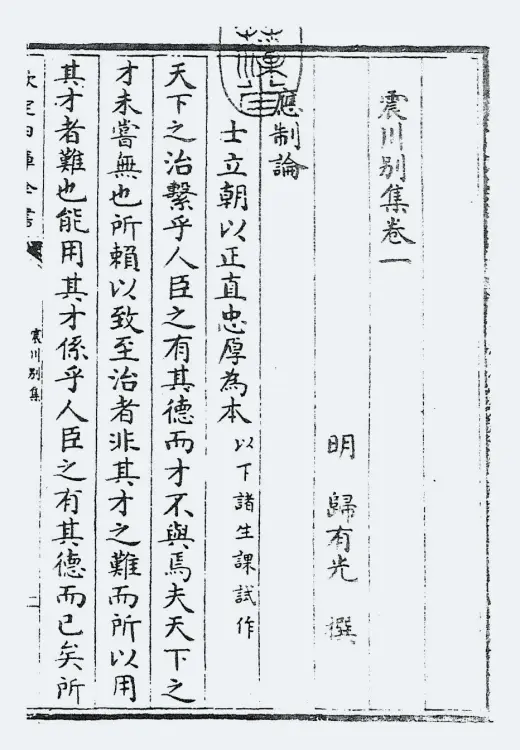 震川別集卷一
明 歸有光 撰
應制論
士立朝以正直忠厚為本 以下諸生課試作
天下之治繫乎人臣之有其德而才不與焉夫天下之
才未嘗無也所賴以致至治者非其才之難而所以用
其才者難也能用其才係乎人臣之有其德而已矣所
欽定四庫全書
震川別集